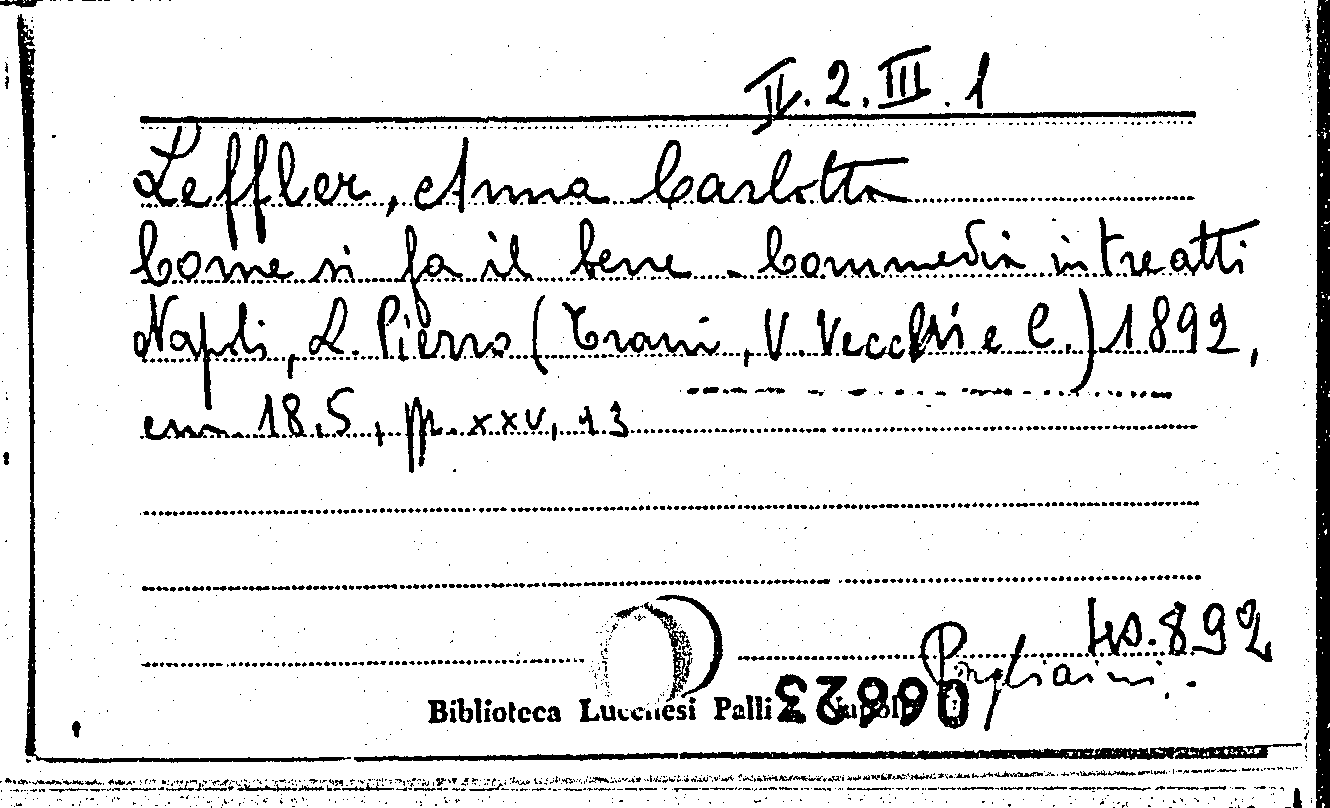 II.2.III.1
Leffler, Anna Carlotta
Come si fa il bene - Commedia in tre atti
Napoli, L. Pierro (Trani, V. Vecchi e C.) 1892,
cm 18,5, pp. xxv, 93
48.892
Pagliaini.
Biblioteca Lucchesi Palli - Napoli